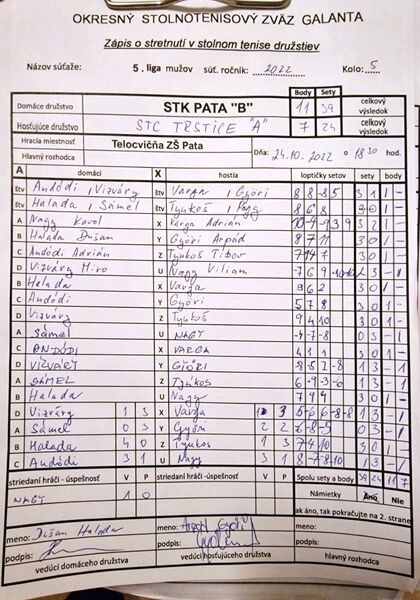 OKRESNÝ STOLNOTENISOVÝ ZVÄZ GALANTA
Zápis o stretnutí v stolnom tenise družstiev
Názov súťaže: 5. liga mužov súť. ročník: 2022 Kolo: 5
Body Sety
Domáce družstvo STK PATA "B" 11 39 celkový výsledok
Hosťujúce družstvo STC TRSTICE "A" 7 24 celkový výsledok
Hracia miestnosť Telocvičňa ZŠ Pata Dňa: 24.10.2022 o 18 30 hod.
Hlavný rozhodca
A domáci X hostia loptičky setov sety body
štv Andódi , Vizváry štv Varga , Györi 8 8 -8 5 3 1 1 -
štv Halada , Sámel štv Tyukoš , Nagy 8 6 8 3 0 1 -
A Nagy Karol X Varga Adrián
B Halada Dušan Y Györi Arpád 8 7 11 3 0 1 -
C Andódi Adrián Z Tyukoš Tibor 3 0 1 -
D Vizváry Miro U Nagy Viliam
B Halada X Varga 9 6 2 3 0 1 -
C Andódi Y Györi 5 7 8 3 0 1 -
D Vizváry Z Tyukoš 9 4 10 3 0 1 -
A Sámel U NAGY -4 -7 -8 0 3 - 1
C ANDÓDI X VARGA 4 1 1 3 0 1 -
D VIZVÁRY Y GYÖRI 1 3 - 1
A SÁMEL Z Tyukos 6 -9 -3 -6 1 3 - 1
B Halada U Nagy 7 9 4 3 0 1 -
D Vizváry 1 3 X Varga
A Sámel 0 3 Y Györi 2 2
B Halada 4 0 Z Tyukos 1 3 7 4 10 3 0 1 -
C Andódi 3 1 U Nagy 3 1 8 -7 -8 -10 1 3 - 1
striedaní hráči - úspešnosť V P striedaní hráči - úspešnosť V P Spolu sety a body 39 24 11 7
NAGY 1 0 Námietky Áno Nie
ak áno, tak pokračujte na 2. strane
meno: Dušan Halada meno: Arpád Györi meno:
podpis: podpis: podpis:
vedúci domáceho družstva vedúci hosťujúceho družstva hlavný rozhodca